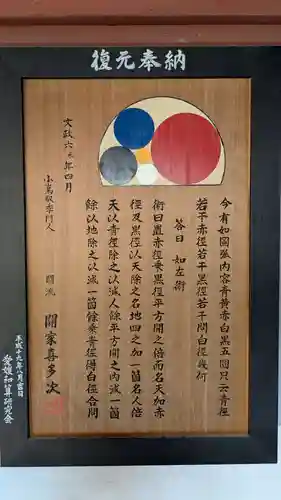 復元奉納
今有如圖弧内容青黄赤白黒五圓只云青徑
若干赤徑若干黒徑若干問白徑幾何
答曰 如左術
術曰置赤徑乗黒徑平方開之倍而名天加赤
徑及黒徑以天除之名地四之加一箇名人倍
天以青徑除之以減人餘平方開之内減一箇
餘以地除之以減一箇餘乗青徑得白徑合問
文政六年四月
門人
關流
關家喜多次
平成十九年八月吉日
愛媛和算研究会